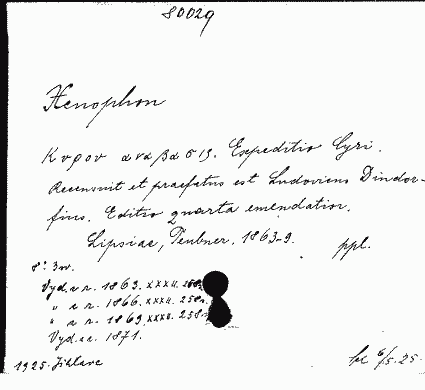 80029
Xenophon
Κυρου αναβασις. Expeditio Cyri.
Recensuit et praefatus est Ludovicus Dindor-
fius. Editio quarta emendatior.
Lipsiae, Teubner, 1863-9.
ppl.
8°. 3 sv.
Vyd. z r. 1863. XXXII. 258 s.
" z r. 1866. XXXII. 258 s.
" z r. 1869. XXXII. 258
Vyd. 1871.
1925. Jihlava
6/5. 25.